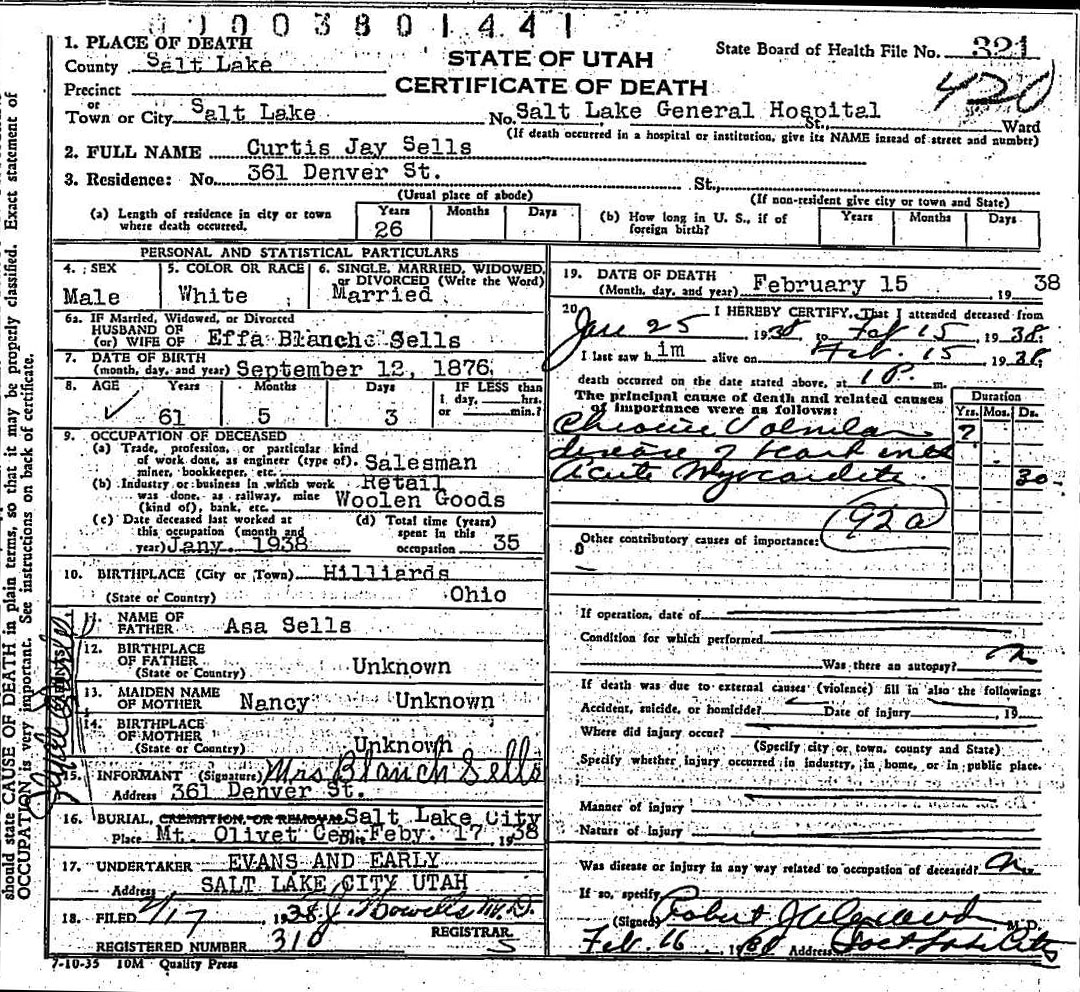 01003801441
1. PLACE OF DEATH
County Salt Lake
STATE OF UTAH
CERTIFICATE OF DEATH
State Board of Health File No. 321
420
Precinct
or
Town or City Salt Lake No. Salt Lake General Hospital St., Ward
(If death occurred in a hospital or institution, give its NAME instead of street and number)
2. FULL NAME Curtis Jay Sells
3. Residence: No. 361 Denver St. St.,
(Usual place of abode) (If non-resident give city or town and State)
(a) Length of residence in city or town where death occurred. Years 26 Months Days
(b) How long in U. S., if of foreign birth? Years Months Days
PERSONAL AND STATISTICAL PARTICULARS
4. SEX Male
5. COLOR OR RACE White
6. SINGLE, MARRIED, WIDOWED, or DIVORCED (Write the Word) Married
6a. IF Married, Widowed, or Divorced
HUSBAND OF
(or) WIFE OF Effa Blanche Sells
7. DATE OF BIRTH
(month, day, and year) September 12, 1876
8. AGE Years 61 Months 5 Days 3 IF LESS than 1 day, hrs. or min.?
9. OCCUPATION OF DECEASED
(a) Trade, profession, or particular kind of work done, as engineer (type of), miner, bookkeeper, etc. Salesman
(b) Industry or business in which work was done, as railway, mine (kind of), bank, etc. Retail Woolen Goods
(c) Date deceased last worked at this occupation (month and year) Jany. 1938
(d) Total time (years) spent in this occupation 35
10. BIRTHPLACE (City or Town) Hilliards
(State or Country) Ohio
11. NAME OF FATHER Asa Sells
12. BIRTHPLACE OF FATHER
(State or Country) Unknown
13. MAIDEN NAME OF MOTHER Nancy Unknown
14. BIRTHPLACE OF MOTHER
(State or Country) Unknown
PARENTS
15. INFORMANT (Signature) Mrs Blanch Sells
Address 361 Denver St.
16. BURIAL, CREMATION, OR REMOVAL Salt Lake City
Place Mt. Olivet Cem. Date Feby. 17 1938
17. UNDERTAKER EVANS AND EARLY
Address SALT LAKE CITY UTAH
18. FILED 2/17 1938 J. Bowells M.D.
REGISTRAR.
REGISTERED NUMBER 310
7-10-35 10M Quality Press
19. DATE OF DEATH
(Month, day, and year) February 15, 1938
20. I HEREBY CERTIFY, That I attended deceased from
Jan 25 1938, to Feb 15, 1938.
I last saw him alive on Feb. 15 1938,
death occurred on the date stated above, at 1 P. m.
The principal cause of death and related causes of importance were as follows:
Duration
Yrs. Mos. Ds.
Chronic Valvular ?
disease of heart and
acute Myocarditis 30
92a
Other contributory causes of importance:
If operation, date of
Condition for which performed
Was there an autopsy? no
If death was due to external causes (violence) fill in also the following:
Accident, suicide, or homicide? Date of injury , 19
Where did injury occur?
(Specify city or town, county and State)
Specify whether injury occurred in industry, in home, or in public place.
Manner of injury
Nature of Injury
Was disease or injury in any way related to occupation of deceased? no
If so, specify
(Signed) Robert J Alexander M.D.
Feb. 16 1938 Address Salt Lake City
should state CAUSE OF DEATH in plain terms, so that it may be properly classified. Exact statement of
OCCUPATION is very important. See instructions on back of certificate.